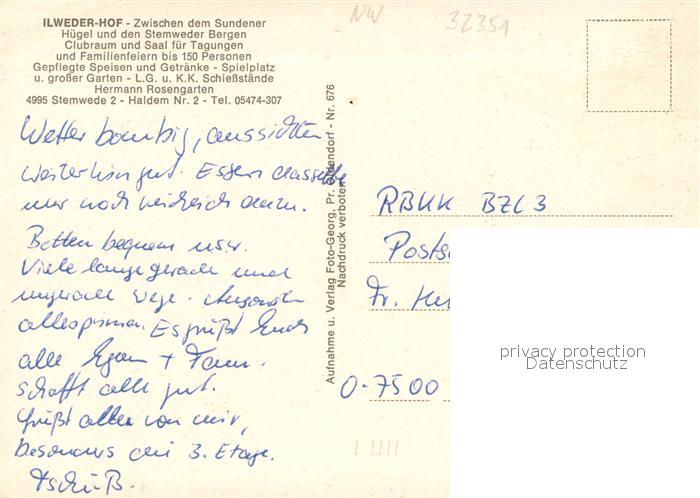 ILWEDER-HOF - Zwischen dem Sundener
Hügel und den Stemweder Bergen
Clubraum und Saal für Tagungen
und Familienfeiern bis 150 Personen
Gepflegte Speisen und Getränke - Spielplatz
u. großer Garten - L.G. u. K.K. Schießstände
Hermann Rosengarten
4995 Stemwede 2 - Haldem Nr. 2 - Tel. 05474-307
Wetter bombig, Aussichten
weiterhin gut. Essen dasselbe
nur noch reichlich dazu.
Betten bequem usw.
Viele lange gerade und
ungerade Wege. Ansonsten
alles prima. Es grüßt Euch
alle Egon + Fam.
Schafft alle gut.
Grüßt alle von mir,
besonders die 3. Etage.
Tschüß.
Aufnahme u. Verlag Foto-Georg, Pr. Oldendorf - Nr. 676
Nachdruck verboten
NW
32351
RBKK BZL 3
Posts
Fr.
O-7500
privacy protection
Datenschutz